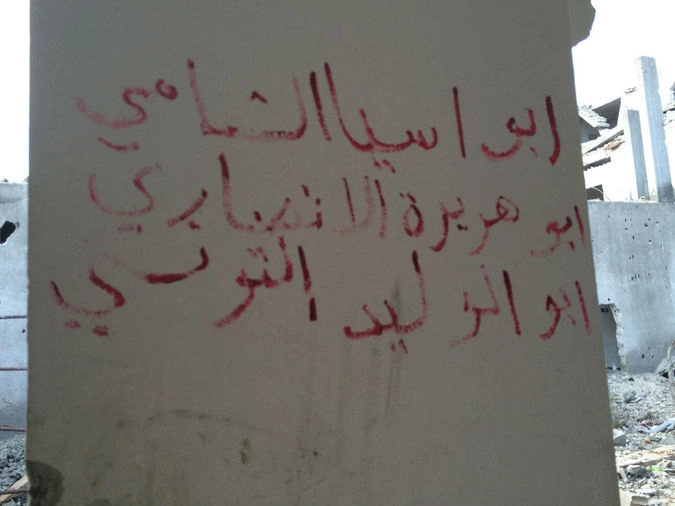 ابو اسيا الشامي
ابو هريرة الانصاري
ابو الوليد التونسي